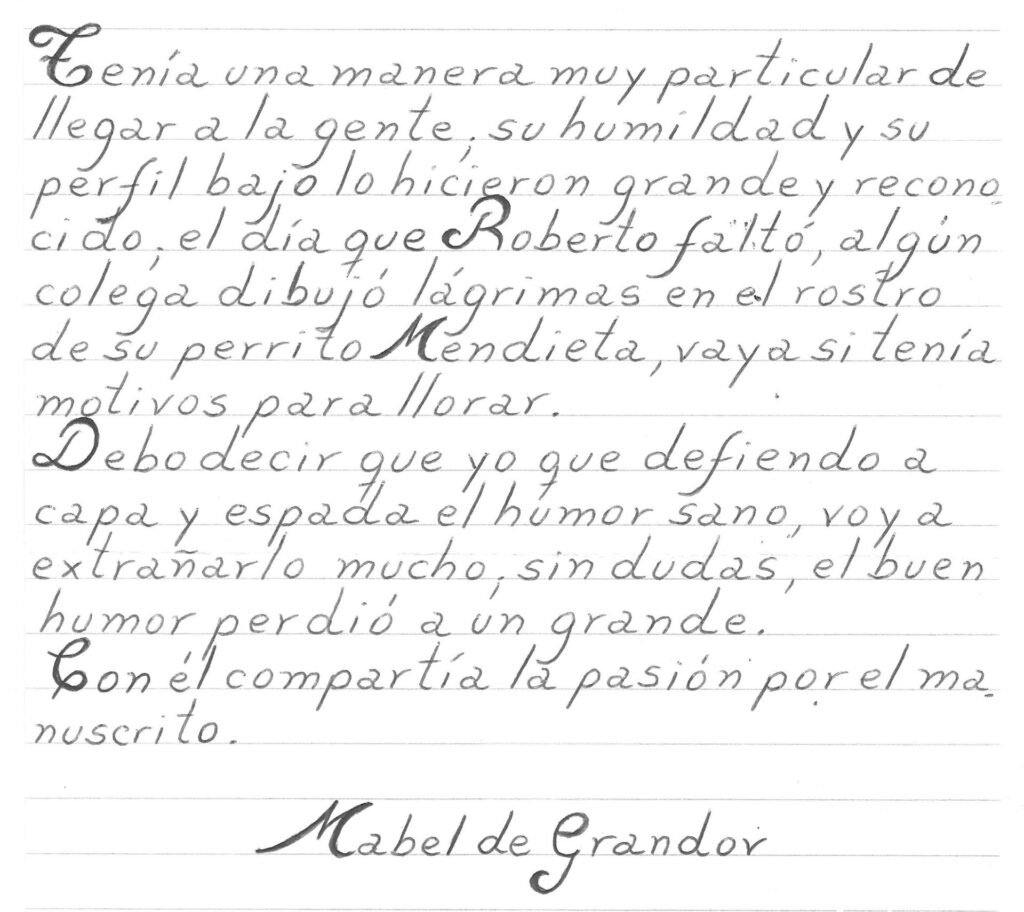 Tenía una manera muy particular de
llegar a la gente, su humildad y su
perfil bajo lo hicieron grande y recono-
cido, el día que Roberto faltó, algún
colega dibujó lágrimas en el rostro
de su perrito Mendieta, vaya si tenía
motivos para llorar.
Debo decir que yo que defiendo a
capa y espada el humor sano, voy a
extrañarlo mucho, sin dudas, el buen
humor perdió a un grande.
Con él compartía la pasión por el ma-
nuscrito.
Mabel de Grandov